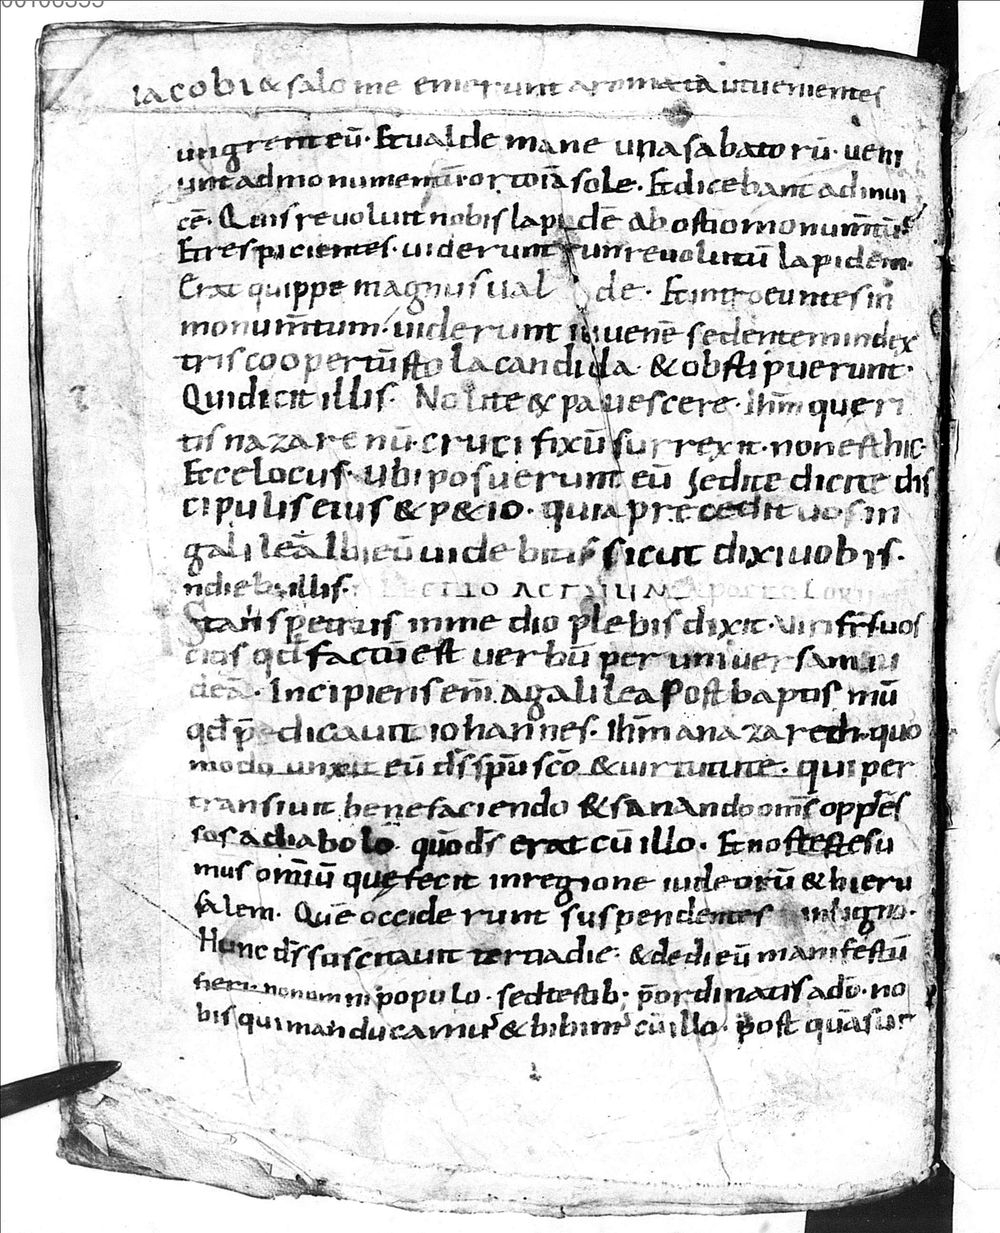 iacobi & salome emerunt aromata ut uenientes
ungrent eū· Et ualde mane una sabatorū· ueni
unt ad monumentū· orto iā sole· Et dicebant ad inui
cē· Quis reuoluit nobis lapidē ab ostio monum̄tū
Et respicientes· uiderunt reuolutū lapidem·
Erat quippe magnus ual de· Et introeuntes in
monum̄tum· uiderunt iuuenē sedentem in dex
tris coopertū stola candida & obstipuerunt·
Qui dicit illis· Nolite expauescere· ihm̄ queri
tis nazarenū· crucifixū surrexit· non est hic·
Ecce locus· ubi posuerunt eū sed ite dicite dis
cipulis eius & p&ro· quia precedit uos in
galileā Ibi eū uidebitis sicut dixi uobis·
Stans petrus in medio plebis dixit· Viri fr̄s uos
scitis qd̄ factū est uerbū per uniuersam iu
deā· Incipiens em̄ a galilea Post baptismū
qd̄ p̄dicauit iohannes· Ihm̄ a nazareth· quo
modo unxit eū ds̄ sp̄u sc̄o & uirtutute· qui per
transiuit benefaciendo & sanando om̄s opp̄es
sos a diabolo· quō ds̄ erat cū illo· Et nos testes su
mus om̄iū quę fecit in regione iudeorū & hieru
salem· Quē occiderunt suspendentes in ligno·
Hunc ds̄ suscitauit tertia die· & dedi eū manifestū
fieri non omni populo· sed testib; p̄ordinatis a dō· no
bis qui manducauim᾽ & bibim᾽ cū illo· post quā sur